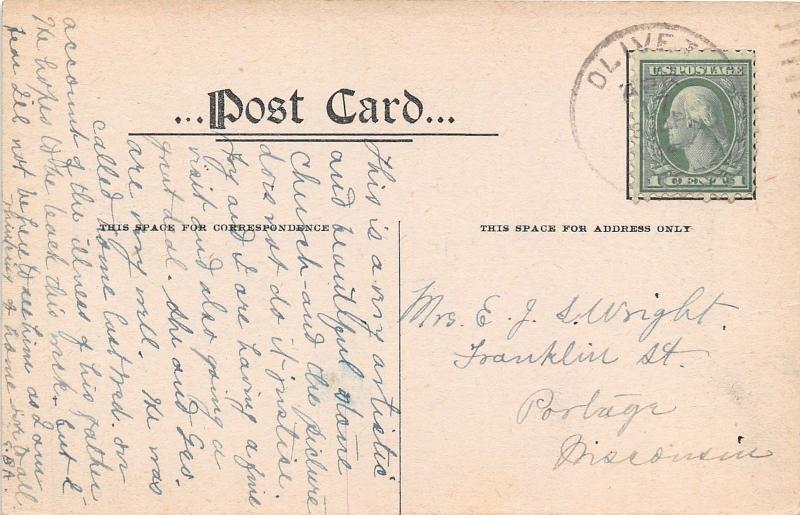 ...Post Card...
THIS SPACE FOR CORRESPONDENCE
THIS SPACE FOR ADDRESS ONLY
OLIVET
U.S. POSTAGE
1 CENT 1
Mrs. E. J. S. Wright.
Franklin St.
Portage
Wisconsin
This is a very artistic
and beautiful stone
Church - and the picture
does not do it justice.
and I are having a fine
visit and also going a
great deal. She and Geo.
are very well. He was
called home last Wed. on
account of the illness of his father
He hopes to be back this week. but I
fear I'll not be here to see him as I am
thinking of home